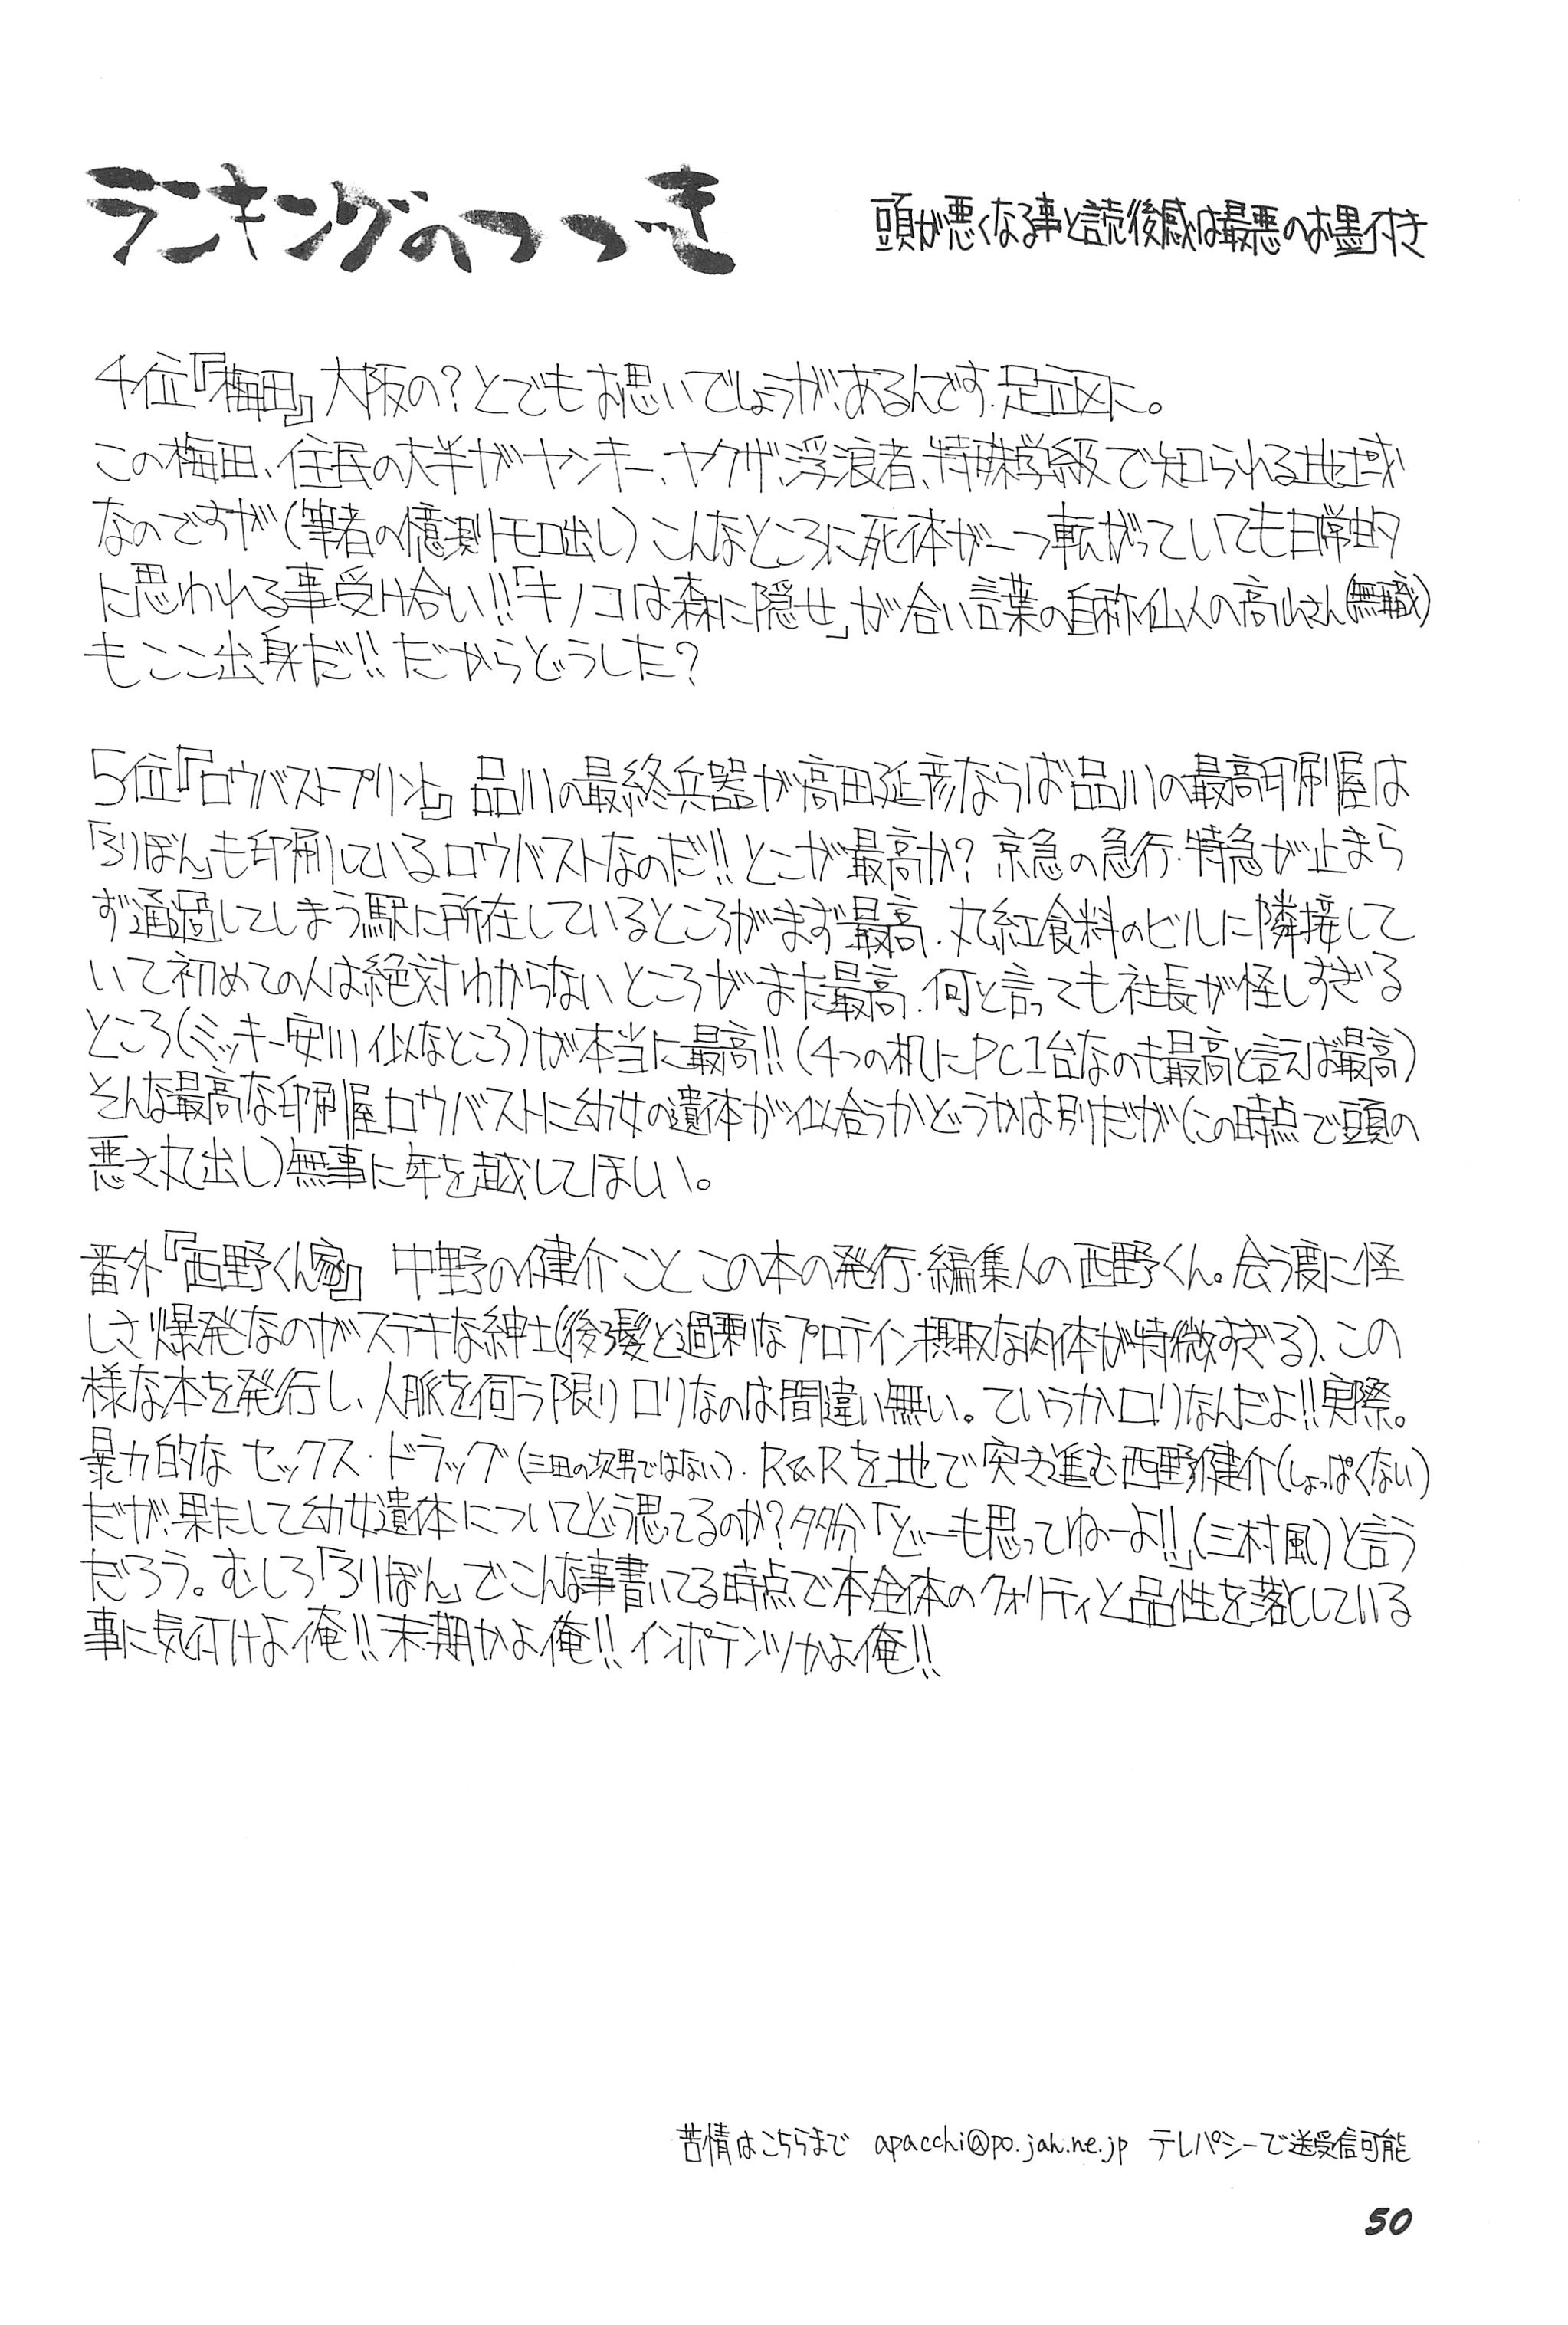 ランキングのつづき
頭が悪くなる事と読後感は最悪のお墨付き
4位『梅田』大阪の?とでもお思いでしょうが、あるんです、足立区に。
この梅田、住民の大半がヤンキー、ヤクザ、浮浪者、特殊学級で知られる地域
なのですが(筆者の憶測トモロ出し)こんなところに死体が一つ転がっていても日常的
に思われる事受け合い!!「キノコは森に隠せ」が合い言葉の自称仙人の高山さん(無職)
もここ出身だ!!だからどうした?
5位『ロウバストプリント』品川の最終兵器が高田延彦ならば品川の最高印刷屋は
「ろりぽん」も印刷しているロウバストなのだ!!とこが最高か?京急の急行・特急が止まら
ず通過してしまう駅に所在しているところがまず最高、丸紅食料のビルに隣接して
いて初めての人は絶対わからないところがまた最高、何と言っても社長が怪しすぎる
ところ(ミッキー安川似なところ)が本当に最高!!(4つの机にPC1台なのも最高と言えば最高)
そんな最高な印刷屋ロウバストに幼女の遺体が似合うかどうかは別だが(この時点で頭の
悪さ丸出し)無事に年を越してほしい。
番外『西野くん家』 中野の健介ことこの本の発行・編集人の西野くん。会う度に怪
しさ爆発なのがステキな紳士(後ろ髪と過剰なプロテイン摂取な肉体が特徴すぎる)、この
様な本を発行し、人脈を伺う限りロリなのは間違い無い。ていうかロリなんだよ!!実際。
暴力的なセックス・ドラッグ(三田の次男ではない)・R&Rを地で突き進む西野健介(しょっぱくない)
だが、果たして幼女遺体についてどう思ってるのか?多分「どーも思ってねーよ!!」(三村風)と言う
だろう。むしろ「ろりぽん」でこんな事書いてる時点で本全体のクォリティと品性を落としている
事に気付けよ俺!!末期かよ俺!!インポテンツかよ俺!!
苦情はこちらまで apacchi@po.jah.ne.jp テレパシーで送受信可能
50